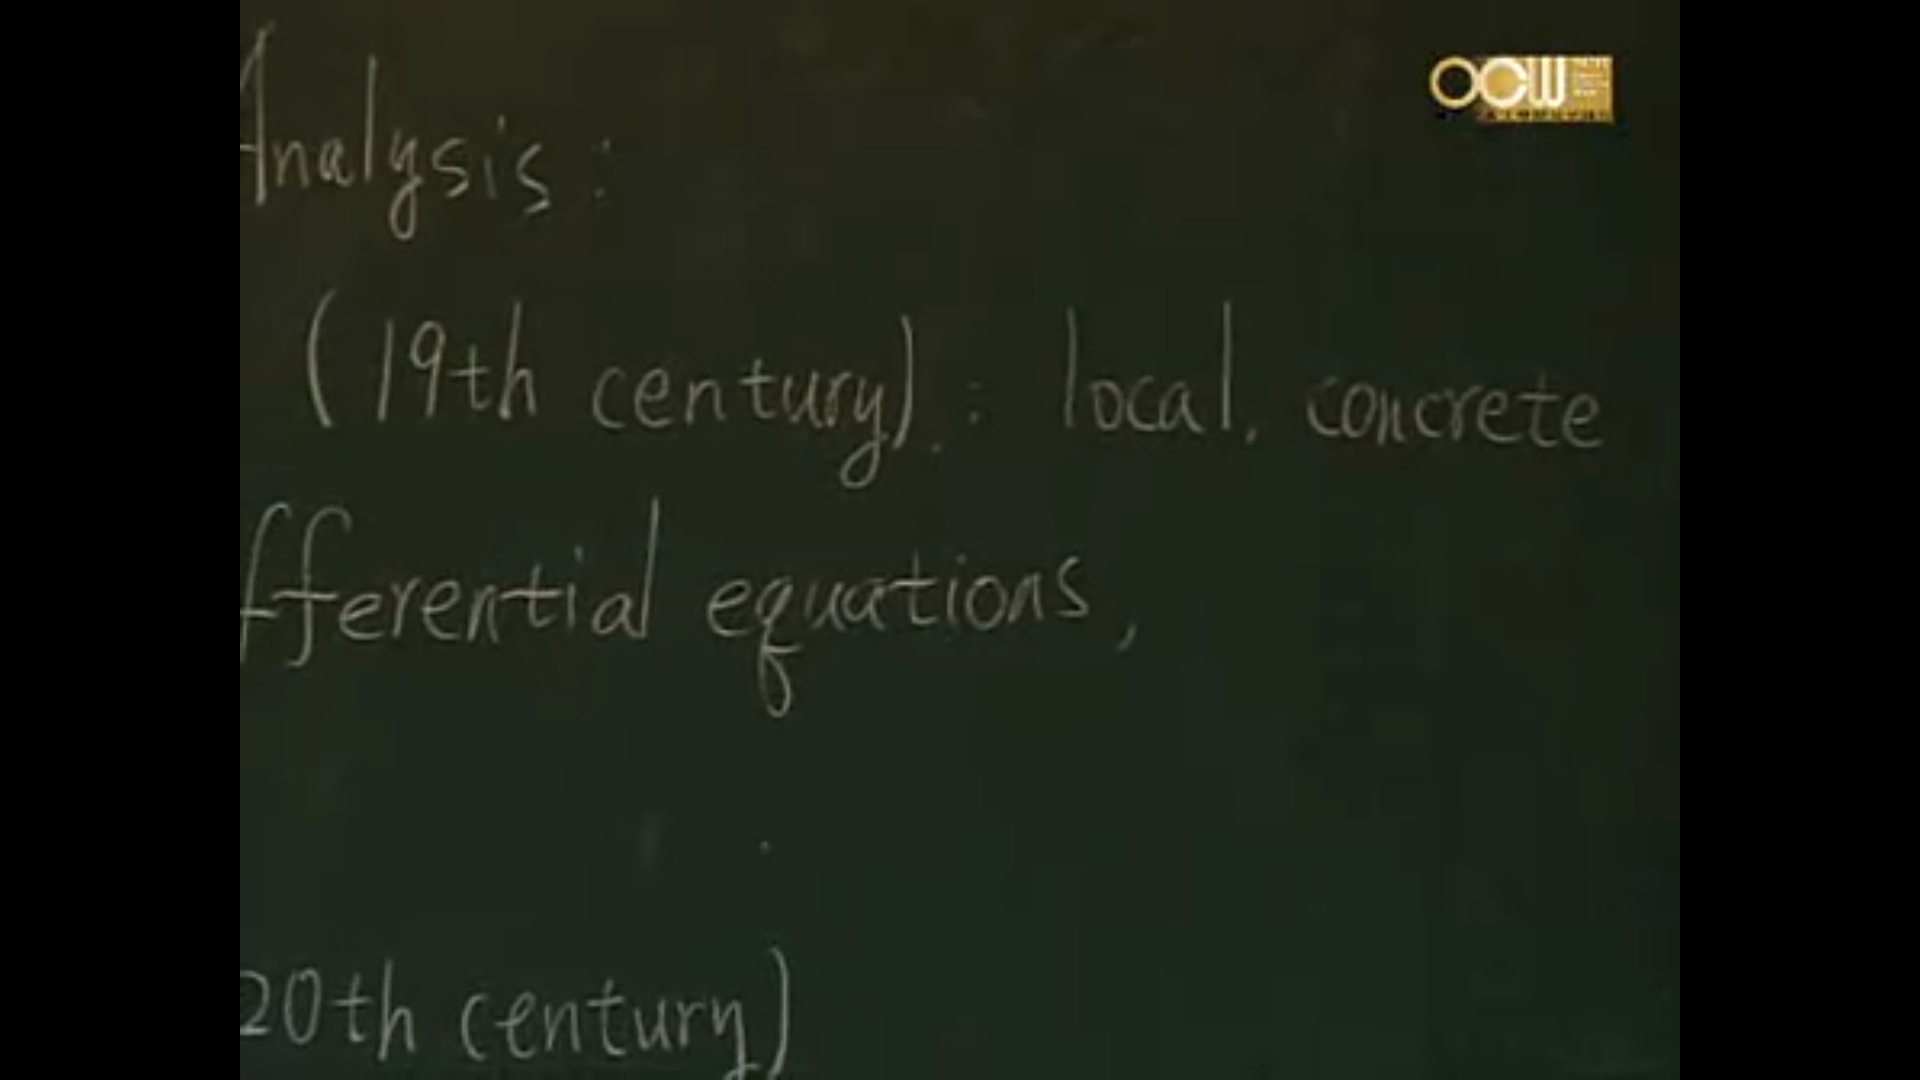 Analysis:
(19th century): local, concrete
fferential equations,
20th century)
OCW